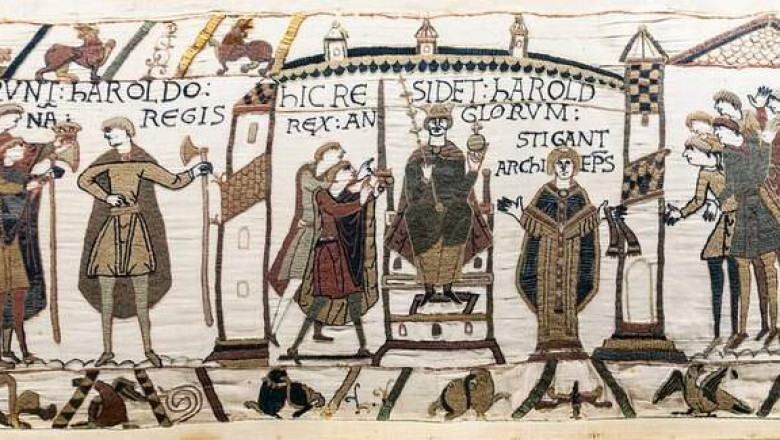 RVNT : hAROLDO :
NA : REGIS
hIC RE SIDET : hAROLD
REX : AN GLORVM :
STIGANT
ARChI EPS